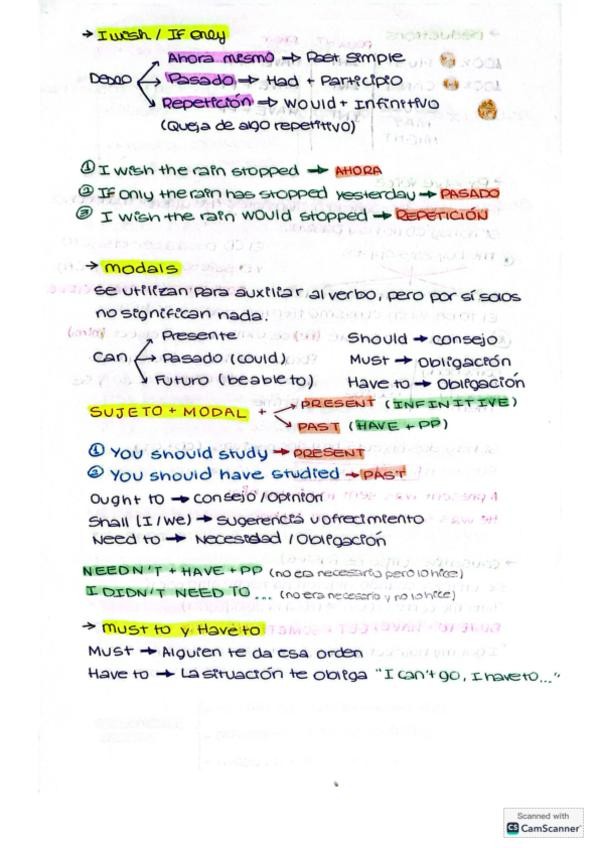 → I wish / If only
Ahora mismo → Past simple
Deseo Pasado → Had + Participio
Repetición → Would + Infinitivo
(Queja de algo repetitivo)
① I wish the rain stopped → AHORA
② If only the rain has stopped yesterday → PASADO
③ I wish the rain would stopped → REPETICIÓN
→ Modals
Se utilizan para auxiliar al verbo, pero por sí solos
no significan nada.
Presente Should → consejo
Can Pasado (could) Must → Obligación
Futuro (be able to) Have to → Obligación
SUJETO + MODAL + PRESENT (INFINITIVE)
PAST (HAVE + PP)
① You should study → PRESENT
② You should have studied → PAST
Ought to → consejo / Opinión
Shall (I / We) → Sugerencia u ofrecimiento
Need to → Necesidad / Obligación
NEEDN'T + HAVE + PP (no era necesario pero lo hice)
I DIDN'T NEED TO ... (no era necesario y no lo hice)
→ Must to y Have to
Must → Alguien te da esa orden
Have to → La situación te obliga "I can't go, I have to..."
Scanned with
CS CamScanner